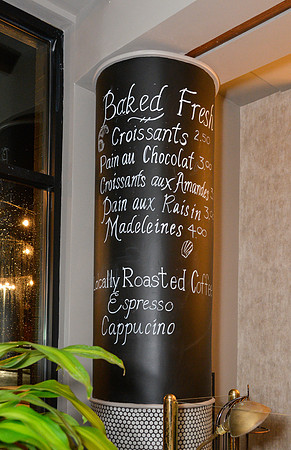 Baked Fresh
Croissants 2.50
Pain au Chocolat 3.00
Croissants aux Amandes 3
Pain aux Raisin 3.
Madeleines 4.00
Locally Roasted Coffee
Espresso
Cappucino